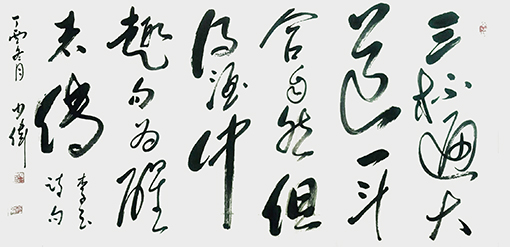 三杯通大
道一斗
合自然但
得酒中
趣勿為醒
者傳
李白
詩句
丁酉冬月 少偉